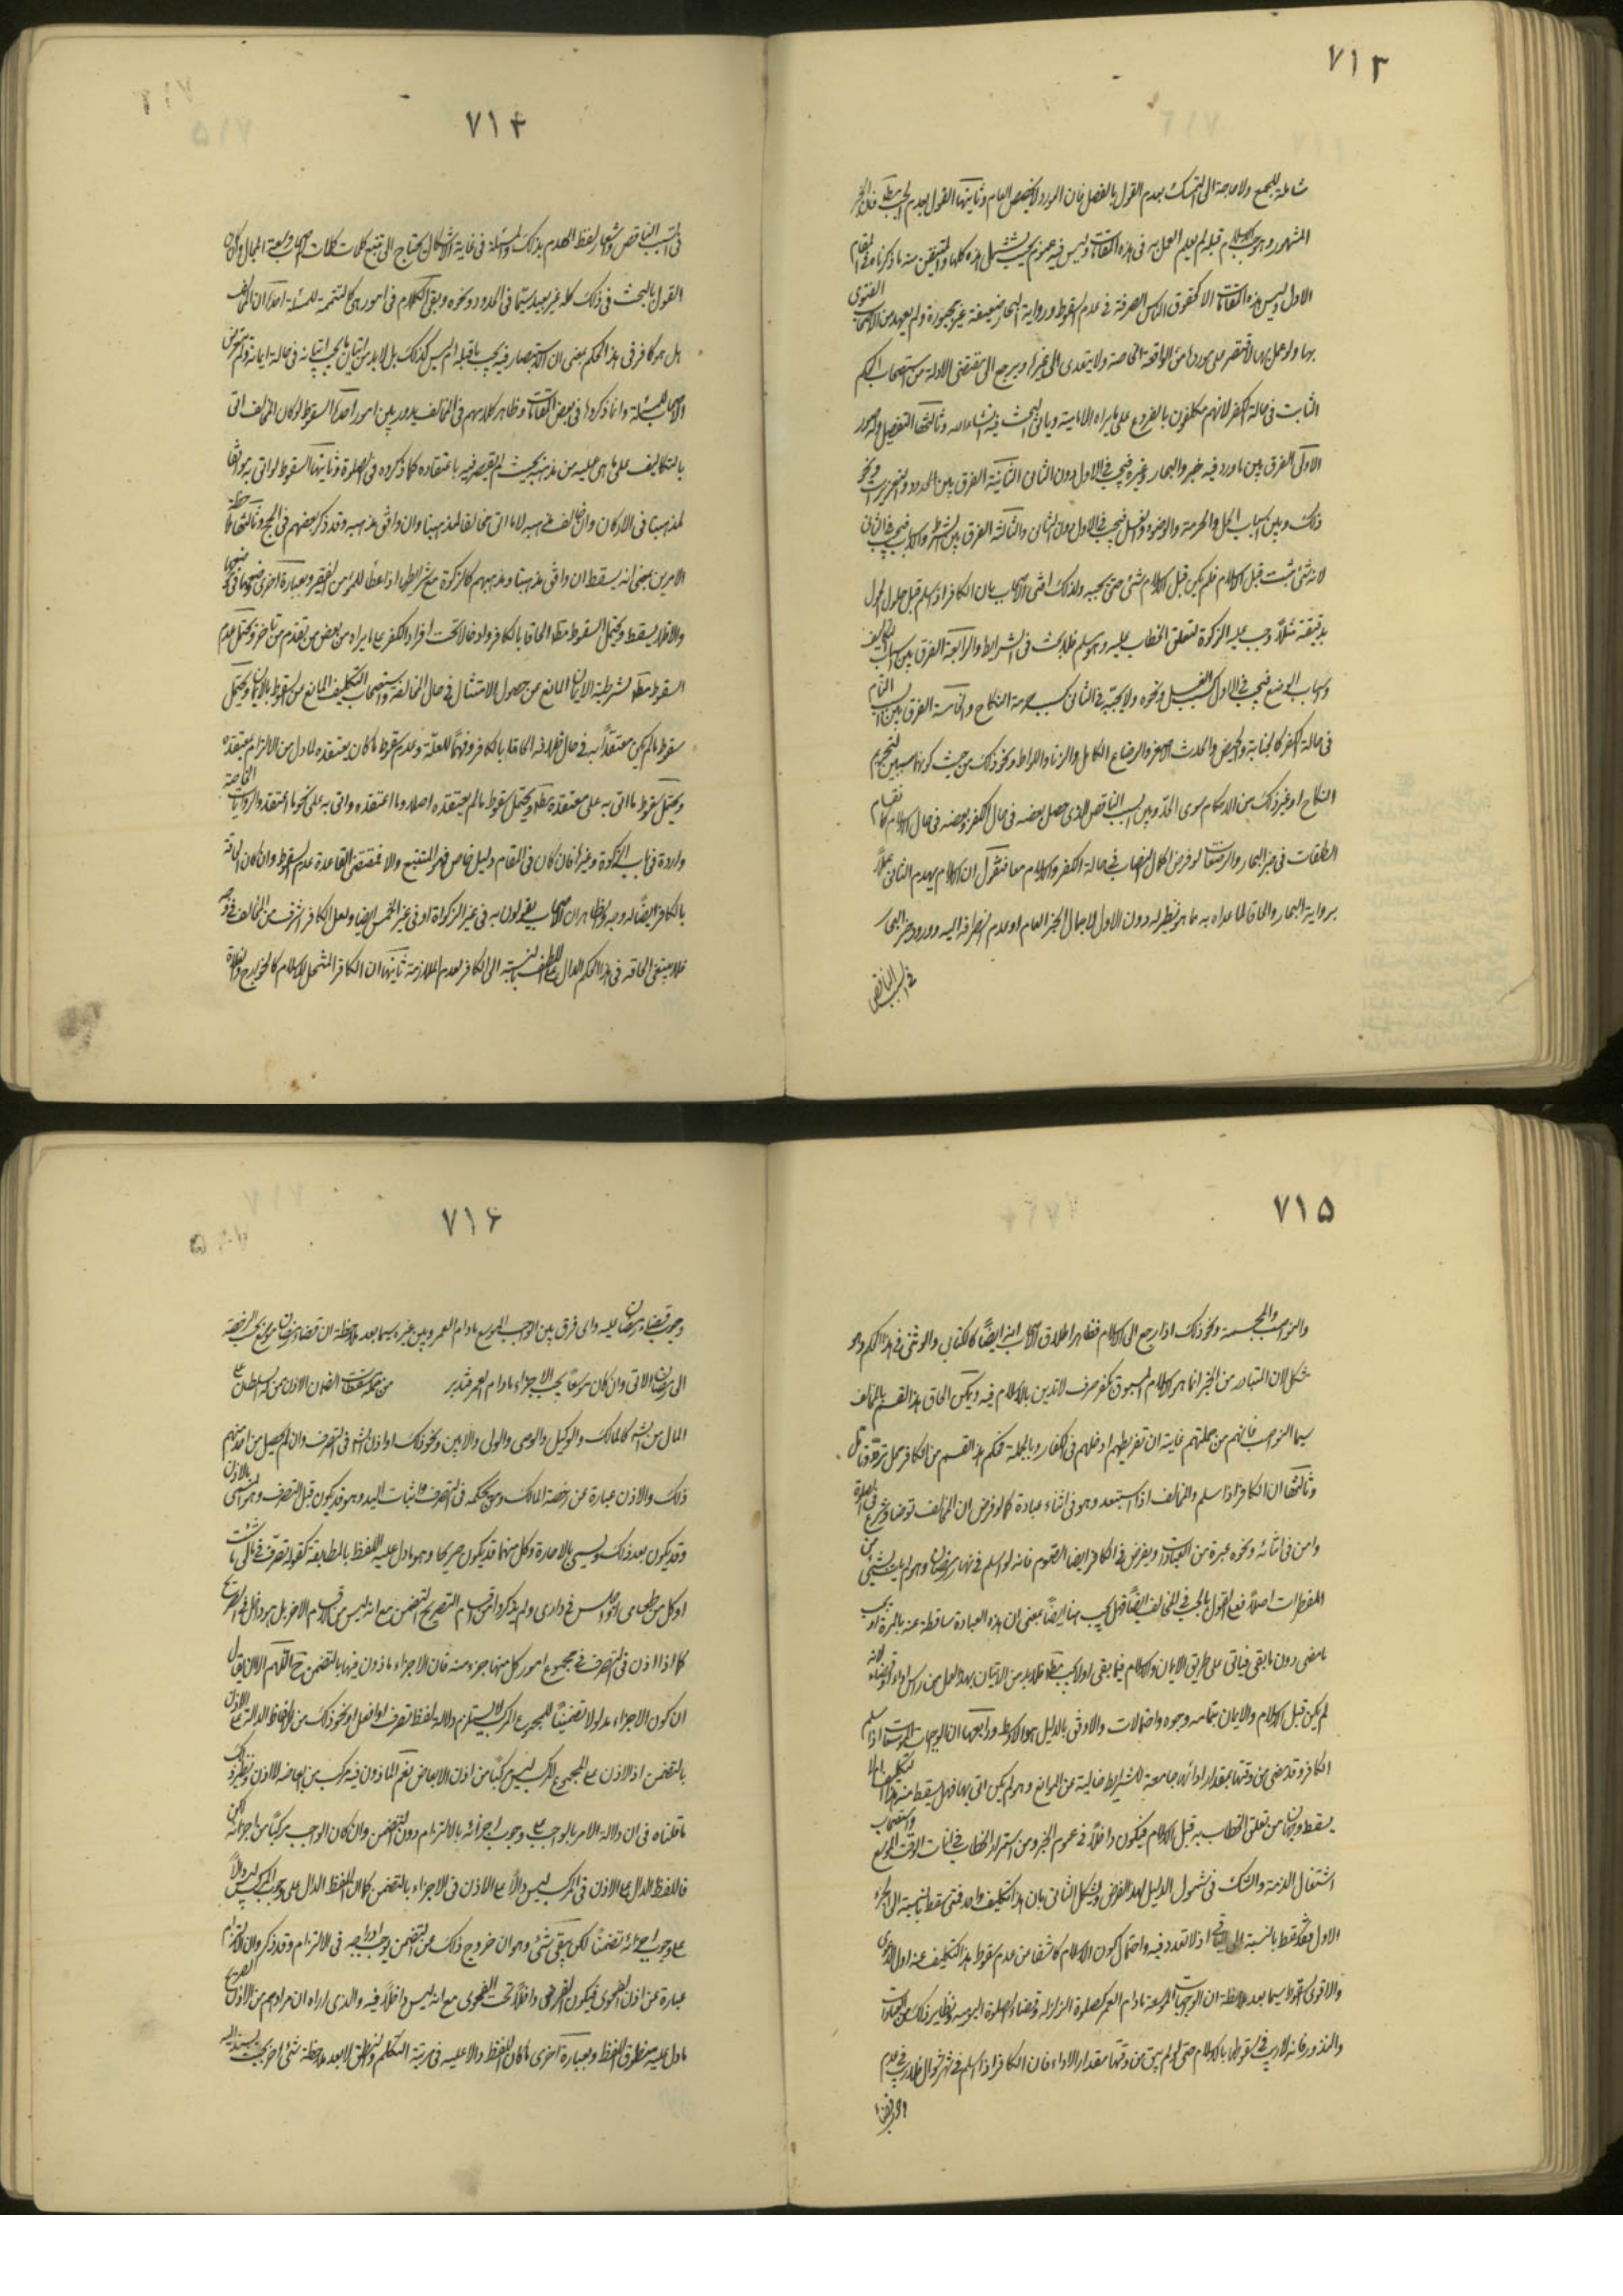 ٧١٣
شاملة للجميع ولا حاجة الى التمسك بعدم القول بالفصل فان المورد لا يخصص العام وثانيها القول بعدم الجب
المشهور وهو حب الاسلام قبله لم يعلم العمل به في هذه المقامات وليس فيه عموم بحيث يشمل هذه كلها والمتيقن منه ما ذكرنا في المقام
الاول وليس هذه المقامات الا كحقوق الناس الصرفة في عدم السقوط ورواية البحار ضعيفة غير مجبورة ولم يعهد من الاصحاب الفتوى
بها ولو عمل بها لاقتصر على موردها من الواقعة الخاصة ولا يتعدى الى غيرها ويرجع الى مقتضى الادلة من استصحاب الحكم
الثابت في حالة الكفر لانهم مكلفون بالفروع على ما يراه الامامية وياتي البحث فيه انشاء الله وثالثها التفصيل وله صور
الاولى الفرق بين ما ورد فيه خبر البحار وغيره فيجب في الاول دون الثاني الثانية الفرق بين الحدود والتعزيرات ونحو
ذلك وبين اسباب الحل والحرمة والوضوء والغسل فيجب في الاول دون الثاني والثالثة الفرق بين الشرط والاسباب فيجب في الثاني
لانه شئ ثبت قبل الاسلام فلم يكن قبل الاسلام شئ حتى يجبه ولذلك افتى الاصحاب بان الكافر اذا اسلم قبل حلول الحول
بدقيقة مثلا وجب عليه الزكوة لتعلق الخطاب عليه وهو مسلم فلا بحث في الشرايط والرابعة الفرق بين اسباب التكاليف
واسباب الوضع فيجب في الاول كسبب الغسل ونحوه ولا يجب في الثاني كسبب حرمة النكاح والخامسة الفرق بين السبب التام
في حالة الكفر كالجنابة والحيض والحدث الاصغر والرضاع الكامل والزنا واللواط ونحو ذلك من حيث كونها سببين لتحريم
النكاح او غير ذلك من الاحكام سوى الحد وبين السبب الناقص الذي حصل بعضه في حال الكفر وبعضه في حال الاسلام كاقسام
الطلقات في خبر البحار والرضعات لو فرض اكمال النصاب في حالة الكفر والاسلام معا فنقول ان الاسلام يهدم الثاني عملا
برواية البحار والحاقا لما عداه به مما هو نظيره دون الاول لاجمال الخبر العام او عدم انصرافه اليه وورود خبر البحار
في السبب الناقص
٧١٤
في السبب الناقص واشعار لفظ الهدم بذلك والمسئلة في غاية الاشكال يحتاج الى تتبع كلمات الاصحاب وسعة المجال وكان
القول بالبحث في ذلك كله غير بعيد سيما في الحدود ونحوه وبقي الكلام في امور هي كالتتمة للمسئلة احدها ان المخالف
هل هو كافر في هذا الحكم بمعنى ان الاستبصار فيه يجب ما قبله ام ليس كذلك بل لابد من اتيان ما يجب اتيانه في حالة ايمانه ولم يتعرض
الاصحاب للمسئلة وانما ذكروها في بعض المقامات وظاهر كلامهم في المخالف يدور بين امور احدها السقوط لو كان المخالف اتى
بالتكاليف على ما هي عليه من مذهبه بحيث لم يقصر فيه باعتقاده كما ذكروه في الصلوة وثانيها السقوط لو اتى به موافقا
لمذهبنا في الاركان وان خالف مذهبه لا ما اتى مخالفا لمذهبنا وان وافق مذهبه وقد ذكر بعضهم في الحج وثالثها
الامرين بمعنى انه يسقط ان وافق مذهبنا ومذهبهم كالزكوة مع شرائطها اذا اعطاها للمؤمن الفقير وبعبارة اخرى
والا فلا يسقط ويحتمل السقوط مطلقا الحاقا بالكافر ودخولا تحت افراد الكفر على ما يراه من بعض من تقدم من تاخر ويحتمل عدم
السقوط مطلقا لشرطية الايمان المانع من حصول الامتثال في حال المخالفة واستصحاب التكليف المانع من السقوط بالايمان ويحتمل
سقوط ما لم يكن معتقدا به في حال خلافه الحاقا بالكافر وفهما للعلة وعدم سقوط ما كان يعتقده لما دل من الالزام بمعتقده
ويحتمل سقوط ما اتى به على معتقده مطلقا ويحتمل سقوط ما لم يعتقده اصلا وما اعتقده واتى به على نحو ما اعتقد والروايات الخاصة
واردة في باب الزكوة وغيرها فان كان في المقام دليل خاص فهو المتبع والا فمقتضى القاعدة عدم السقوط وان كان الحاقه
بالكافر ايضا له وجه والظاهر ان الاصحاب يقولون به في غير الزكواة او في غير الخمس ايضا ولعل الكافر اشرف من المخالف في وجه
فلا ينبغي الحاقه في هذا الحكم الدال على اللطف بالنسبة الى الكافر لعدم الملازمة ثانيها ان الكافر المنتحل للاسلام كالخوارج والغلاة
٧١٥
والنواصب والمجسمة ونحو ذلك اذا رجع الى الاسلام فظاهر اطلاق الاصحاب انه ايضا كالكتابي والوثني في هذا الحكم وهو
مشكل لان المتبادر من الخبر انما هو الاسلام المسبوق بكفر صرف لا تدين بالاسلام فيه ويمكن الحاق هذا القسم بالمخالف
سيما النواصب فانهم من جملتهم غاية ان تفريطهم ادخلهم في الكفار وبالجملة فحكم هذا القسم من الكافر محل تردد وتامل
وثالثها ان الكافر اذا اسلم والمخالف اذا استبعد وهو في اثناء عبادة كما لو فرض ان المخالف توضا وشرع في الصلوة
وامن في اثنائه ونحوه غيره من العبادات ويفرض في الكافر ايضا الصوم فانه لو اسلم في نهار رمضان وهو لم يات بشئ من
المفطرات اصلا فمع القول بالجب في المخالف ايضا فهل يجب هنا ايضا بمعنى ان هذه العبادة ساقطة عنه بالمرة او يجب
ما مضى دون ما بقى فياتي على طريق الايمان والاسلام فيما بقى اولا يجب مطلقا فلابد من الاتيان بهذا العمل من راس اداء او قضاء لانه
لم يكن قبل الاسلام والايمان بتمامه وجوه واحتمالات والاوفق بالدليل هو الاوسط ورابعها ان الواجبات الموسعة اذا اسلم
الكافر وقد مضى من وقتها مقدار ادائها جامعة للشرايط خالية عن الموانع وهو لم يكن اتى بها فهل يسقط منه هذا التكليف ام لا
يسقط وجهان من تعلق الخطاب به قبل الاسلام فيكون داخلا في عموم الخبر ومن استمرار الخطاب في انات الوقت الموسع واستصحاب
اشتغال الذمة والشك في شمول الدليل لهذا الفرض ويشكل الثاني بان هذا تكليف واحد فمتى سقط بالنسبة الى الجزء
الاول فقد سقط بالنسبة الى الباقي اذ لا تعدد فيه واحتمال كون الاسلام كاشفا من عدم سقوط هذا التكليف عنه اول الدعوى
والاقوى سقوطه لا سيما بعد ملاحظة ان الواجبات الموسعة مادام العمر كصلوة الزلزلة وقضاء الصلوة اليومية ونظاير ذلك من العبادات
والنذور فانه لاريب في سقوطها بالاسلام حتى لو لم يبق من وقتها مقدار الاداء فان الكافر اذا اسلم في شهر شوال فلاريب في عدم
وجوب قضاء
٧١٦
وجوب قضاء رمضان عليه واي فرق بين الواجب الموسع مادام العمر وبين غيره سيما بعد ملاحظة ان قضاء رمضان موسع بحسب الرخصة
الى رمضان الاتي وان كان موسعا بحسب الاجزاء مادام العمر فتدبر من جملة مسقطات الضمان الاذن ممن له السلطان على
المال من الشه كالمالك والوكيل والوصي والولي والامين ونحو ذلك او اذن الشه في التصرف وان لم يحصل من احد منهم
ذلك والاذن عبارة عن رخصة المالك ومن بحكمه في التصرف واثبات اليد وهو قد يكون قبل التصرف وهو المسمى بالاذن
وقد يكون بعد ذلك ويسمى بالاجازة وكل منهما قد يكون صريحا وهو ما دل عليه اللفظ بالمطابقة كقوله تصرف في مالي ما شئت
او كل من طعامي او اجلس في داري ولم يذكروا من اقسام التصريح التضمن مع انه ليس من الاقسام الاخر بل هو داخل في الصريح
كما اذا اذن في التصرف في مجموع امور كل منها جزء منه فان الاجزاء ماذون فيها بالتضمن ح اللهم الا ان يقال
ان كون الاجزاء مدلولا تضمنيا للمجموع المركب لا يستلزم دلالة لفظ تصرف او افعل او نحو ذلك من الالفاظ الدالة على الاذن
بالتضمن اذ الاذن على المجموع المركب ليس مركبا من اذن الابعاض نعم الماذون فيه مركب من ابعاضه لا الاذن ونظير ذلك
ما قلناه في ان دلالة الامر بالواجب على وجوب اجزائه بالالتزام دون التضمن وان كان الواجب مركبا من اجزائه لكن
فاللفظ الدال على الاذن في المركب ليس دالا على الاذن في الاجزاء بالتضمن كما ان اللفظ الدال على وجوب المركب ليس دالا
على وجوب اجزائه تضمنا لكن يبقى شئ وهو ان خروج ذلك عن التضمن يوجب ادراجه في الالتزام وقد ذكروا ان الالتزام
عبارة عن اذن الفحوى فيكون الفرض داخلا تحت الفحوى مع انه ليس داخلا فيه والذي اراه ان مرادهم من الاذن الصريح
ما دل عليه منطوق اللفظ وبعبارة اخرى ما كان اللفظ دالا عليه في مرتبة التكلم والنطق لا بعد ملاحظة شئ اخر بحيث يستند اليه